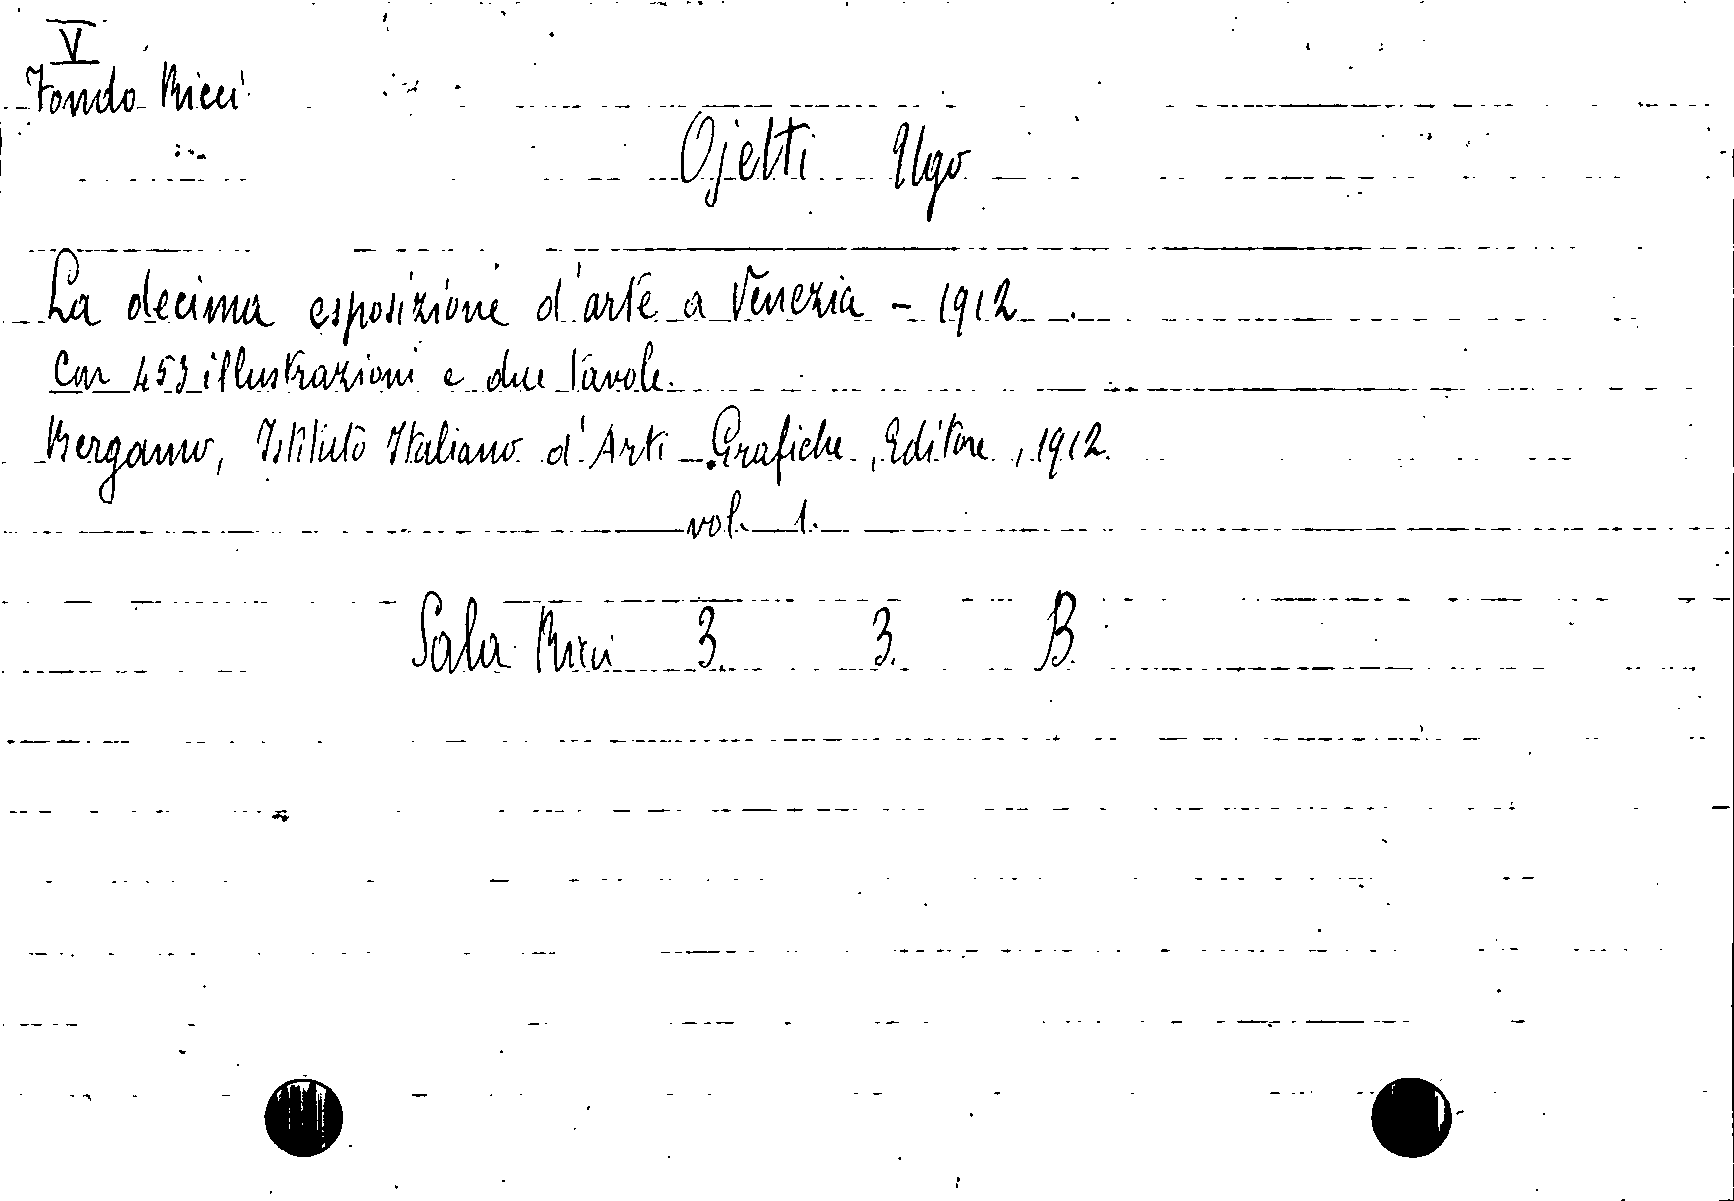 V
Fondo Ricci
Ojetti Ugo
La decima esposizione d'arte a Venezia - 1912.
Con 453 illustrazioni e due tavole.
Bergamo, Istituto Italiano d'Arti Grafiche, Editore, 1912.
vol. 1.
Sala Ricci 3. 3. B.